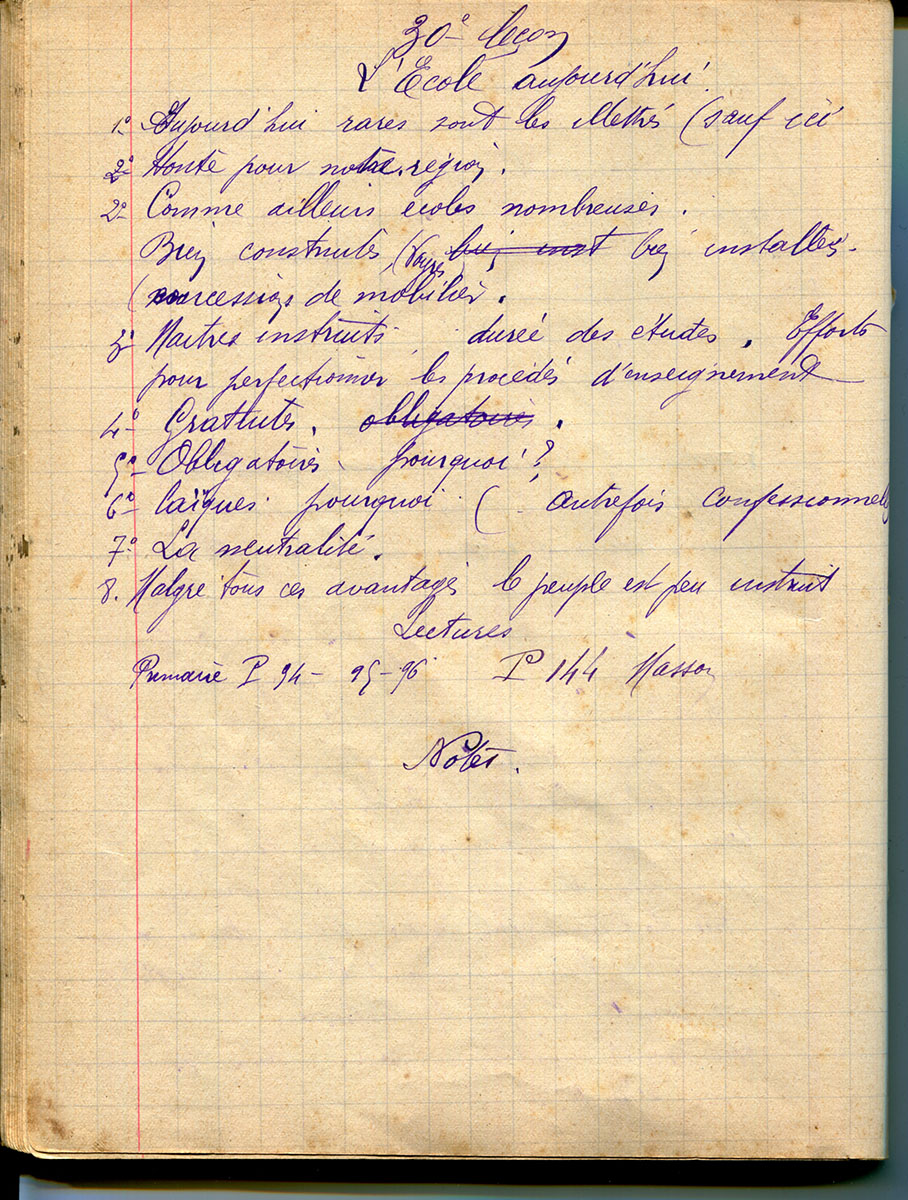 30e leçon
L'École aujourd'hui.
1º Aujourd'hui rares sont les illettrés (sauf ici
2º Honte pour notre région.
2º Comme ailleurs écoles nombreuses.
Bien construites, bien inst bien installées.
(concessions de mobilier.
3º Maitres instruits. durée des études. Efforts
pour perfectionner les procédés d'enseignement
4º Gratuites. obligatoires.
5º Obligatoires pourquoi?
6º laïques. pourquoi. (autrefois confessionnelles
7º La neutralité.
8. Malgré tous ces avantages le peuple est peu instruit
Lectures
Primaire P 94 - 95-96 P 144 Masson
Notes.